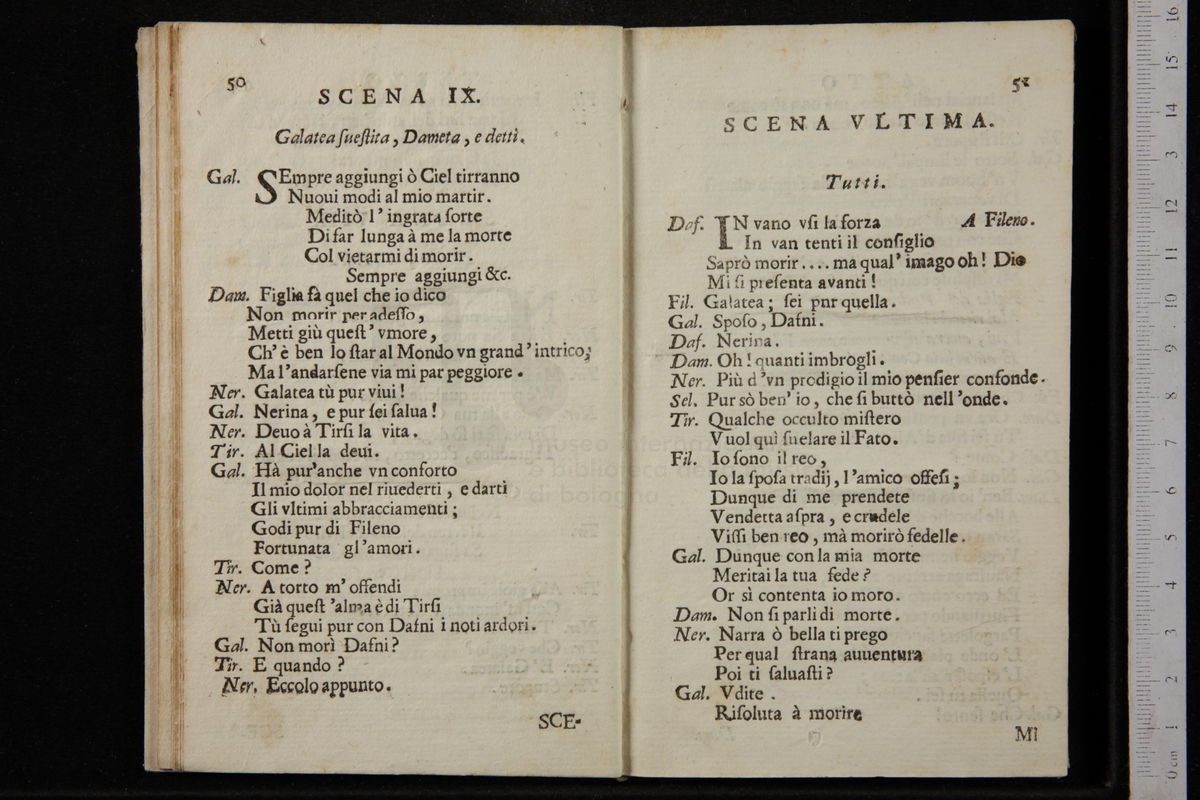 50
SCENA IX.
Galatea sueſtita, Dameta, e detti.
Gal. SEmpre aggiungi ò Ciel tirranno
Nuoui modi al mio martir.
Meditò l'ingrata ſorte
Di far lunga à me la morte
Col vietarmi di morir.
Sempre aggiungi &c.
Dam. Figlia fà quel che io dico
Non morir per adeſſo,
Metti giù queſt'vmore,
Ch'è ben lo ſtar al Mondo vn grand'intrico;
Ma l'andarſene via mi par peggiore.
Ner. Galatea tù pur viui!
Gal. Nerina, e pur ſei ſalua!
Ner. Deuo à Tirſi la vita.
Tir. Al Ciel la deui.
Gal. Hà pur'anche vn conforto
Il mio dolor nel riuederti, e darti
Gli vltimi abbracciamenti;
Godi pur di Fileno
Fortunata gl'amori.
Tir. Come?
Ner. A torto m'offendi
Già queſt'alma è di Tirſi
Tù ſegui pur con Dafni i noti ardori.
Gal. Non morì Dafni?
Tir. E quando?
Ner. Eccolo appunto.
SCE-
51
SCENA VLTIMA.
Tutti.
Daf. IN vano vſi la forza A Fileno.
In van tenti il conſiglio
Saprò morir.... ma qual'imago oh! Dio
Mi ſi preſenta avanti!
Fil. Galatea; ſei pnr quella.
Gal. Spoſo, Dafni.
Daf. Nerina.
Dam. Oh! quanti imbrogli.
Ner. Più d'vn prodigio il mio penſier confonde.
Sel. Pur sò ben'io, che ſi buttò nell'onde.
Tir. Qualche occulto miſtero
Vuol quì ſuelare il Fato.
Fil. Io ſono il reo,
Io la ſpoſa tradij, l'amico offeſi;
Dunque di me prendete
Vendetta aſpra, e crudele
Viſſi ben reo, mà morirò fedelle.
Gal. Dunque con la mia morte
Meritai la tua fede?
Or sì contenta io moro.
Dam. Non ſi parli di morte.
Ner. Narra ò bella ti prego
Per qual ſtrana auuentura
Poi ti ſaluaſti?
Gal. Vdite.
Riſoluta à morire
Mi
museo inter
e biblioteca de
di bologna
0 cm 1 2 3 4 5 6 7 8 9 10 11 12 13 14 15 16